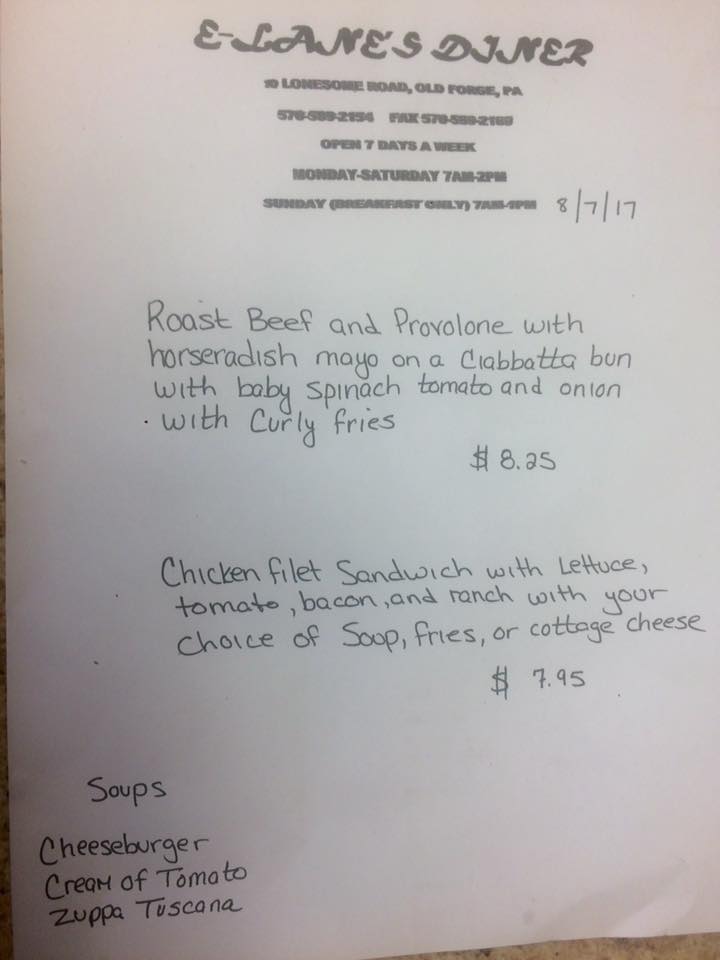 E-LANE'S DINER
10 LONESOME ROAD, OLD FORGE, PA
570-589-2154 FAX 570-589-2169
OPEN 7 DAYS A WEEK
MONDAY-SATURDAY 7AM-2PM
SUNDAY (BREAKFAST ONLY) 7AM-1PM 8/7/17
Roast Beef and Provolone with
horseradish mayo on a Ciabbatta bun
with baby spinach tomato and onion
with Curly fries
$ 8.25
Chicken filet Sandwich with Lettuce,
tomato, bacon, and ranch with your
choice of Soup, fries, or cottage cheese
$ 7.95
Soups
Cheeseburger
Cream of Tomato
Zuppa Tuscana